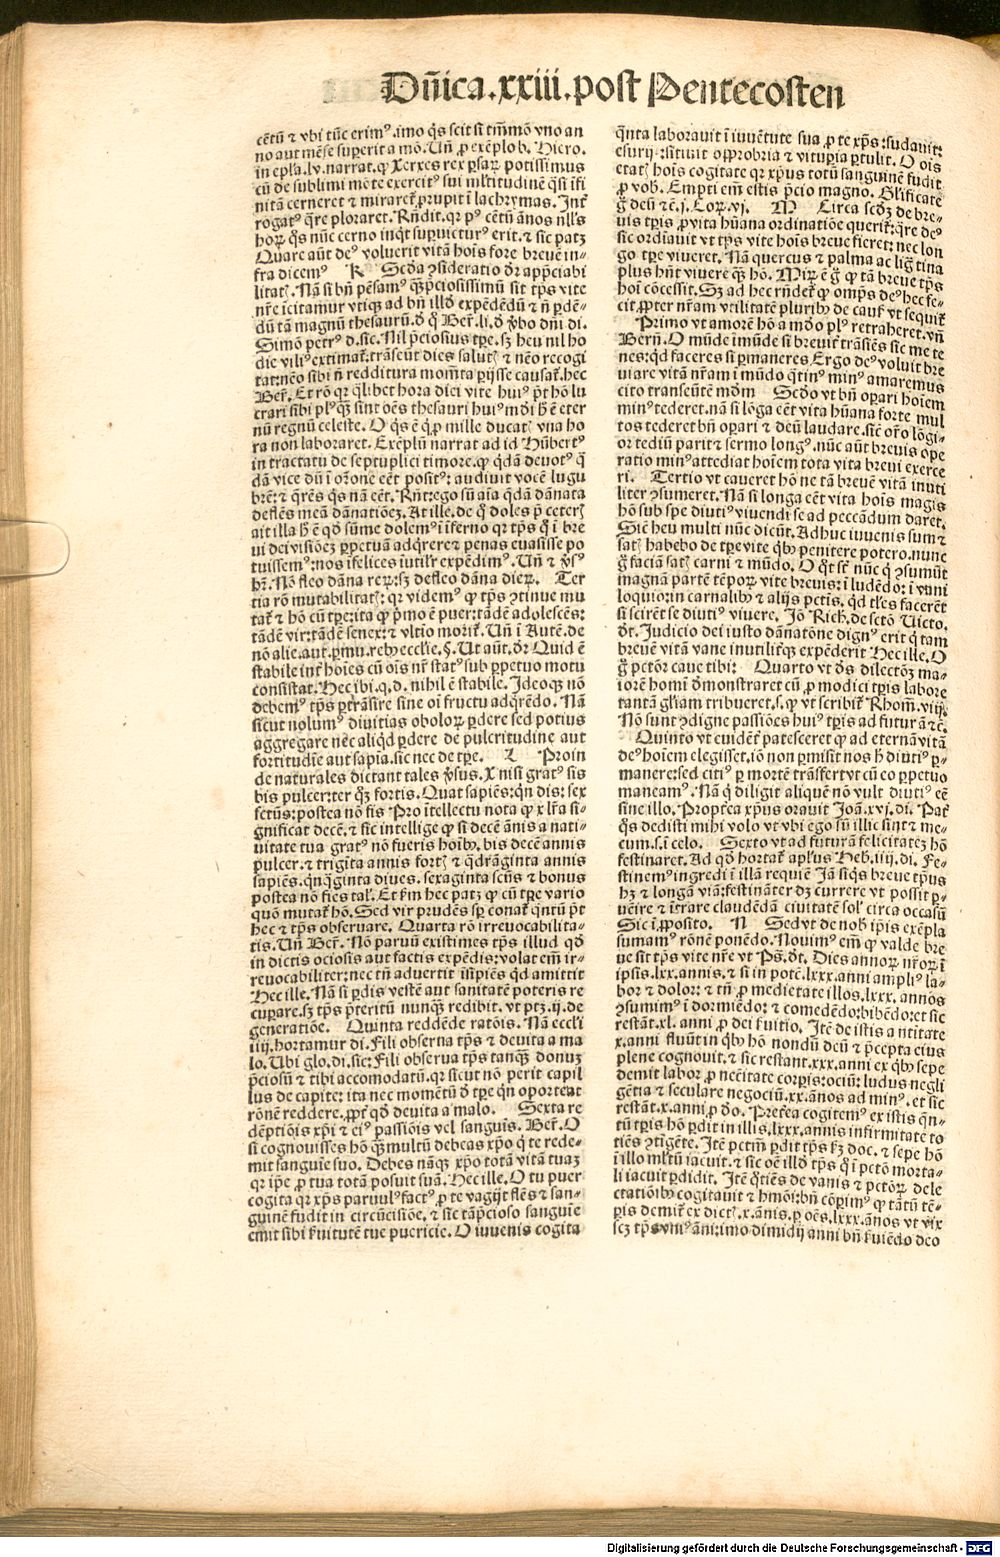 Dñica.xxiii.post Pentecosten
cētū ⁊ vbi tūc erimꝰ.imo q̄s scit si tm̄mō vno an
no aut mēse supererit a mō. Uñ ꝓ exēplo b. Hiero.
in epl̄a.lv.narrat.ꝙ Xerxes rex psaꝝ potissimus
cū de sublimi mōte exercitꝰ sui ml̄titudinē q̄si ifi
nitā cerneret ⁊ miraret̄.prupit ī lachrymas. Int̄
rogatꝰ q̄re ploraret. Rn̄dit.qr pꝰ cētū ānos nll̄s
hoꝝ q̄s nūc cerno inq̄t supuicturꝰ erit.⁊ sic patꝫ
Quare aūt deꝰ voluerit vitā hoīs fore breuē in-
fra dicemꝰ K Scd̄a ꝯsideratio d̄r app̄ciabi
litatꝭ. Nā si bn̄ pēsamꝰ qꝫp̄ciosissimū sit tp̄s vite
nr̄e icitamur vtiqꝫ ad bn̄ illd̄ expēdēdū ⁊ n̄ pdē-
dū tā magnū thesaurū.d̄ q̄ Ber̄.li.d̄ ꝟbo dn̄i di.
Simō petrꝰ d̄.sic. Nil p̄ciosius tpe.sꝫ heu nil ho
die viliꝰ extimat̄.trāseūt dies salutꝭ ⁊ nēo recogi
tat:nēo sibi n̄ redditura momēta pijsse causat̄.hec
Ber̄. Et rō qr ql̄ibet hora diei vite huiꝰ pt hō lu
crari sibi plꝰqꝫ sint oēs thesauri huiꝰ mūdi h̄ ē eter
nū regnū celeste. O q̄s ē q̄ ꝓ mille ducatꝭ vna ho
ra non laboraret. Exēplū narrat ad id Hūbertꝰ
in tractatu de septuplici timore.ꝙ qd̄ā deuotꝰ q̄
dā vice dū ī orōne eēt positꝰ: audiuit vocē lugu
brē: ⁊ q̄rēs q̄s nā eēt. Rn̄t:ego sū aīa qd̄ā dānata
deflēs meā dānationeꝫ. At ille.de q̄ doles p̄ ceterꝭ
ait illa h̄ ē qd̄ sūme dolemꝰ ī iferno qr tp̄s q̄ ī bre
ui dei visiōeꝫ ppetuā adq̄rere ⁊ penas euasisse po
tuissemꝰ:nos ifelices iutilr̄ expēdimꝰ. Uñ ⁊ ꝟsꝰ
hr̄. Nō fleo dāna reꝝ:sꝫ defleo dāna dieꝝ. Ter
tia rō mutabilitatꝭ: qr videmꝰ ꝙ tp̄s ꝯtinue mu
tat̄ ⁊ hō cū tpe:ita ꝙ p̄mo ē puer:tādē adolescēs:
tādē vir:tādē senex: ⁊ vltīo morit̄. Uñ ī Autē.de
nō alie.aut.pmu.rebꝰ eccl̄ie.§. Ut aūt.d̄r Quid ē
stabile int̄ hoīes cū oīs nr̄ statꝰ sub ppetuo motu
consistat. Hec ibi.q.d. nihil ē stabile. Ideoqꝫ nō
debemꝰ tp̄s ptrāsire sine oī fructu adq̄rēdo. Nā
sicut nolumꝰ diuitias oboloꝝ pdere sed potius
aggregare nec aliqd pdere de pulcritudine aut
fortitudīe aut sapia.sic nec de tpe. L Proin
de naturales dictant tales ꝟsus. X nisi gratꝰ sis
bis pulcer:ter qꝫ fortis. Quat sapiēs:qn dis: sex
sctūs:postea nō fis Pro ītellectu nota ꝙ x lr̄a si-
gnificat decē.⁊ sic intellige ꝙ si decē ānis a nati-
uitate tua gratꝰ nō fueris hoībꝰ.bis decē annis
pulcer.⁊ trigīta annis fortꝭ ⁊ qdrāginta annis
sapiēs.qnqginta diues.sexaginta scūs ⁊ bonus
postea nō fies talꝭ. Et f̄m hec patꝫ ꝙ cū tpe vario
quō mutat̄ hō. Sed vir prudēs sp conat̄ qntū pt
hec ⁊ tp̄s obseruare. Quarta rō irreuocabilita-
tis. Uñ Ber̄. Nō paruū existimes tp̄s illud qd̄
in dictis ociosis aut factis expēdis:volat em̄ ir-
reuocabiliter:nec tn̄ aduertit isipiēs qd amittit
Hec ille. Nā si pdis vestē aut sanitatē poteris re
cupare.sꝫ tp̄s p̄teritū nunqꝫ redibit.vt ptꝫ.ij.de
generatiōe. Quinta reddēde ratōis. Nā eccl̄i
iiij.hortamur di. Fili obserua tp̄s ⁊ deuita a ma
lo. Ubi glo.di.sic: Fili obserua tp̄s tanqꝫ donuꝫ
p̄ciosū ⁊ tibi accomodatū.qr sicut nō perit capil
lus de capite: ita nec momētū d̄ tpe qn oporteat
rōnē reddere.ꝓpt̄ qd̄ deuita a malo. Sexta re
dēptiōis xp̄i ⁊ eiꝰ passiōis vel sanguis. Ber̄. O
si cognouisses hō qꝫmultū debeas xp̄o q̄ te rede-
mit sanguīe suo. Debes nāqꝫ xp̄o totā vitā tuaꝫ
qr ip̄e ꝓ tua totā posuit suā. Hec ille. O tu puer
cogita qr xp̄s paruulꝰ factꝰ ꝓ te vagijt flēs ⁊ san-
guinē fudit in circūcisiōe.⁊ sic tāp̄cioso sanguīe
emit sibi s̄uitutē tue puericie. O iuuenis cogita
q̄nta laborauit ī iuuētute sua ꝓ te xp̄s:sudauit:
esurij:sitiuit opprobria ⁊ vitupia ptulit. O oīs
etatꝭ hoīs cogitate qr xp̄us totū sanguinē fudit
ꝓ vob. Empti em̄ estis p̄cio magno. Gl̄ificate
g̊ deū ⁊c̄.j.Coꝝ.vj. M Circa scd̄ꝫ de bre-
uis tpis ꝓ vita hūana ordinatiōe querit̄:q̄re deꝰ
sic ordīauit vt tp̄s vite hoīs breue fieret: nec lon
go tpe viueret. Nā quercus ⁊ palma ac lig̅ tina
plus hn̄t viuere qꝫ hō. Mirū ē g̊ ꝙ tā breue tp̄s
hoī cōcessit. Sꝫ ad hec rn̄det̄ ꝙ omp̄s deꝰ hec fe-
cit ꝓpter nr̄am vtilitatē pluribꝰ de causꝭ vt sequit̄
Primo vt amorē hō a mūdo plꝰ retraheret.vñ
Bern̄. O mūde īmūde si breuit̄ trāsiēs sic me te
nes:qd faceres si pmaneres Ergo deꝰ voluit bre
uiare vitā nr̄am ī mūdo q̄tinꝰ minꝰ amaremus
cito transeūtē mūdm Scd̄o vt bn̄ opari hoīem
minꝰ tederet.nā si lōga eēt vita hūana forte mul
tos tederet bn̄ opari ⁊ deū laudare.sic or̄o lōgi-
or tediū parit ⁊ sermo longꝰ.nūc aūt breuis ope
ratio minꝰ attediat hoīem tota vita breui exerce
ri. Tertio vt caueret hō ne tā breuē vitā inuti
liter ꝯsumeret. Nā si longa eēt vita hoīs magis
hō sub spe diutiꝰ viuendi se ad peccādum daret.
Sic heu multi nūc dicūt. Adhuc iuuenis sum ⁊
satꝭ habebo de tpe vite qbꝰ penitere potero.nunc
g̊ faciā satꝭ carni ⁊ mūdo. O qt sr̄ nūc q̄ ꝯsumūt
magnā partē tēpoꝝ vite breuis: ī ludēdo: ī vani
loquio:in carnalibꝰ ⁊ alijs pctis. qd̄ tl̄es facerēt
si scirēt se diutiꝰ viuere. Iō Rich.de scto Victo.
d̄t. Iudicio dei iusto dānatōne dignꝰ erit q̄ tam
breuē vitā vane inutilit̄qꝫ expēderit Hec ille. O
g̊ pctōr caue tibi: Quarto vt d̄s dilectōꝫ ma-
iorē homī d̄monstraret cū ꝓ modici tpis labore
tantā gl̄iam tribueret.s.ꝙ vt scribit̄ Rhom̄.viij.
Nō sunt ꝯdigne passiōes huiꝰ tpis ad futuram ⁊c̄.
Quinto vt euidēt̄ patesceret ꝙ ad eternā vitā
deꝰ hoīem elegisset.iō non pmisit nos h̄ diutiꝰ p-
manere:sed citiꝰ p mortē trāsfert vt cū eo ppetuo
maneamꝰ. Nā q̄ diligit aliquē nō vult diutiꝰ eē
sine illo. Propt̄ea xp̄us orauit Ioā.xvj.di. Pat̄
q̄s dedisti mihi volo vt vbi ego sū illic sint ⁊ me-
cum.s.ī celo. Sexto vt ad futurā felicitateꝫ hō
festinaret. Ad qd̄ hortat̄ apl̄us Heb.iiij.di. Fe-
stinemꝰ ingredi ī illā requiē Iā siq̄s breue tp̄us
hꝫ ⁊ longā viā:festinātēr dꝫ currere vt possit p-
uēire ⁊ ītrare claudēdā ciuitatē solꝭ circa occasū
Sic ī.ꝓposito. N Sed vt de nob ip̄is exēpla
sumamꝰ rōnē ponēdo. Nouimꝰ em̄ ꝙ valde bre
ue sit tp̄s vite nr̄e vt Ps̄.d̄t. Dies annoꝝ nr̄oꝝ ī
ipsis.lxx.annis.⁊ si in potē.lxxx.anni ampliꝰ la-
bor ⁊ dolor: ⁊ tn̄ ꝓ medietate illos.lxxx.annos
ꝯsumimꝰ ī dormiēdo: ⁊ comedēdo:bibēdo:et sic
restāt.xl.anni ꝓ dei s̄uitio. Itē de istis a ntitate
x.anni fluūt in qbꝰ hō nondū deū ⁊ p̄cepta eius
plene cognouit.⁊ sic restant.xxx.anni ex qbꝰ sepe
demit labor ꝓ nec̄itate corpis:ociū: ludus negli
gētia ⁊ seculare negociū.xx.ānos ad minꝰ.et sic
restāt.x.anni ꝓ d̄o. Pret̄ea cogitemꝰ ex istis q̄n-
tū tpis hō pdit in illis.lxxx.annis infirmitate to
tiēs ꝯtīgēte. Itē pctm̄ pdit tp̄s f̄ꝫ doc.⁊ sepe hō
ī illo ml̄tū iacuit.⁊ sic oē illd̄ tp̄s q̄ ī pctō morta-
li iacuit pdidit. Itē q̄tiēs de vanis ⁊ pctōꝝ dele
ctatiōībꝰ cogitauit ⁊ hmōi:bn̄ cōpīmꝰ ꝙ tātū tē-
pis demit̄ ex dictꝭ.x.ānis.p oēs.lxxx.ānos vt vix
scꝫ tp̄s vniꝰ ani:imo dimidij anni bn̄ s̄uiēdo deo
Digitalisierung gefördert durch die Deutsche Forschungsgemeinschaft - DFG